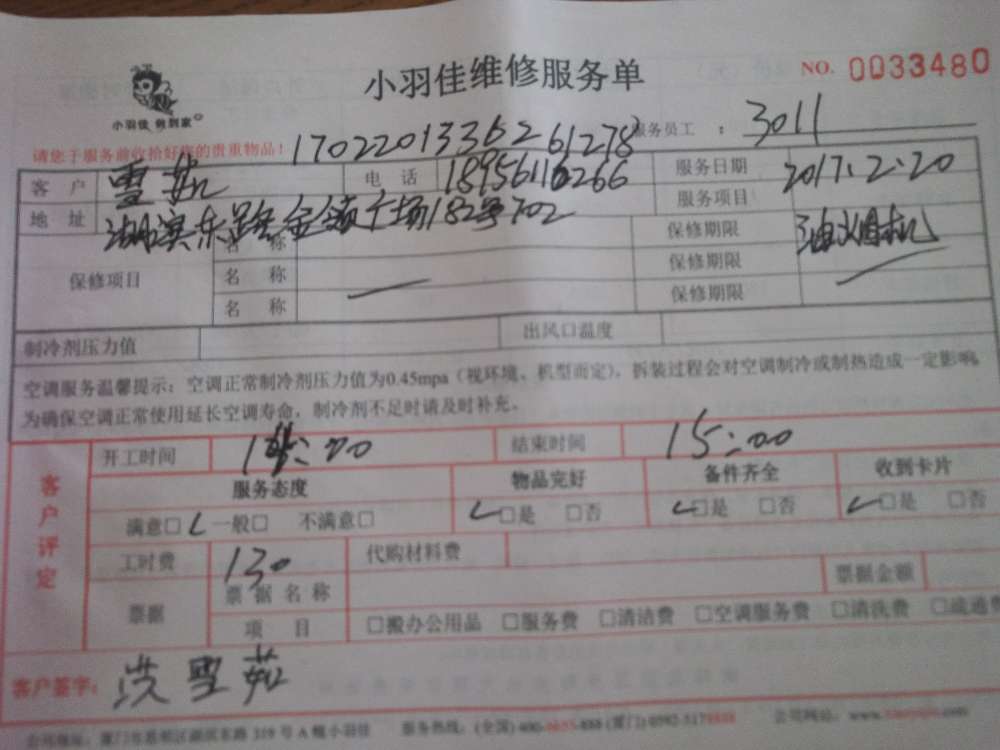 小羽佳维修服务单
NO. 0033480
小羽佳 做到家
请您于服务前收拾好您的贵重物品!
1702201336261278
服务员工 : 3011
客户 雪茹 电话 18956116266 服务日期 2017.2.20
地址 湖滨东路金领广场182号702 服务项目 油烟机
保修项目 名称 保修期限
名称 保修期限
名称 保修期限
制冷剂压力值 出风口温度
空调服务温馨提示:空调正常制冷剂压力值为0.45mpa(视环境、机型而定),拆装过程会对空调制冷或制热造成一定影响,
为确保空调正常使用延长空调寿命,制冷剂不足时请及时补充。
客户评定
开工时间 :00 结束时间 15:00
服务态度 物品完好 备件齐全 收到卡片
满意□ 一般□ 不满意□ □是 □否 □是 □否 □是 □否
工时费 130 代购材料费
票据 票据名称 票据金额
项目 □搬办公用品 □服务费 □清洁费 □空调服务费 □清洗费 □疏通费
客户签字: 洪雪茹
公司地址: 319号A幢小羽佳 服务热线:(全国) 公司网站: